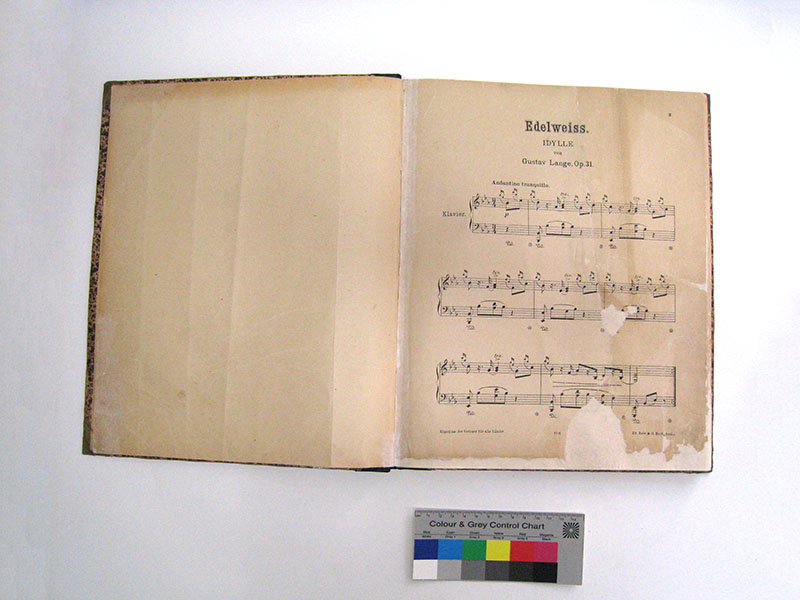 Edelweiss.
IDYLLE
von
Gustav Lange, Op. 31.
Andantino tranquillo.
Klavier.
p
Eigentum der Verleger für alle Länder
Colour & Grey Control Chart
Blue Cyan Green Yellow Red Magenta
White Grey 1 Grey 2 Grey 3 Grey 4 Black